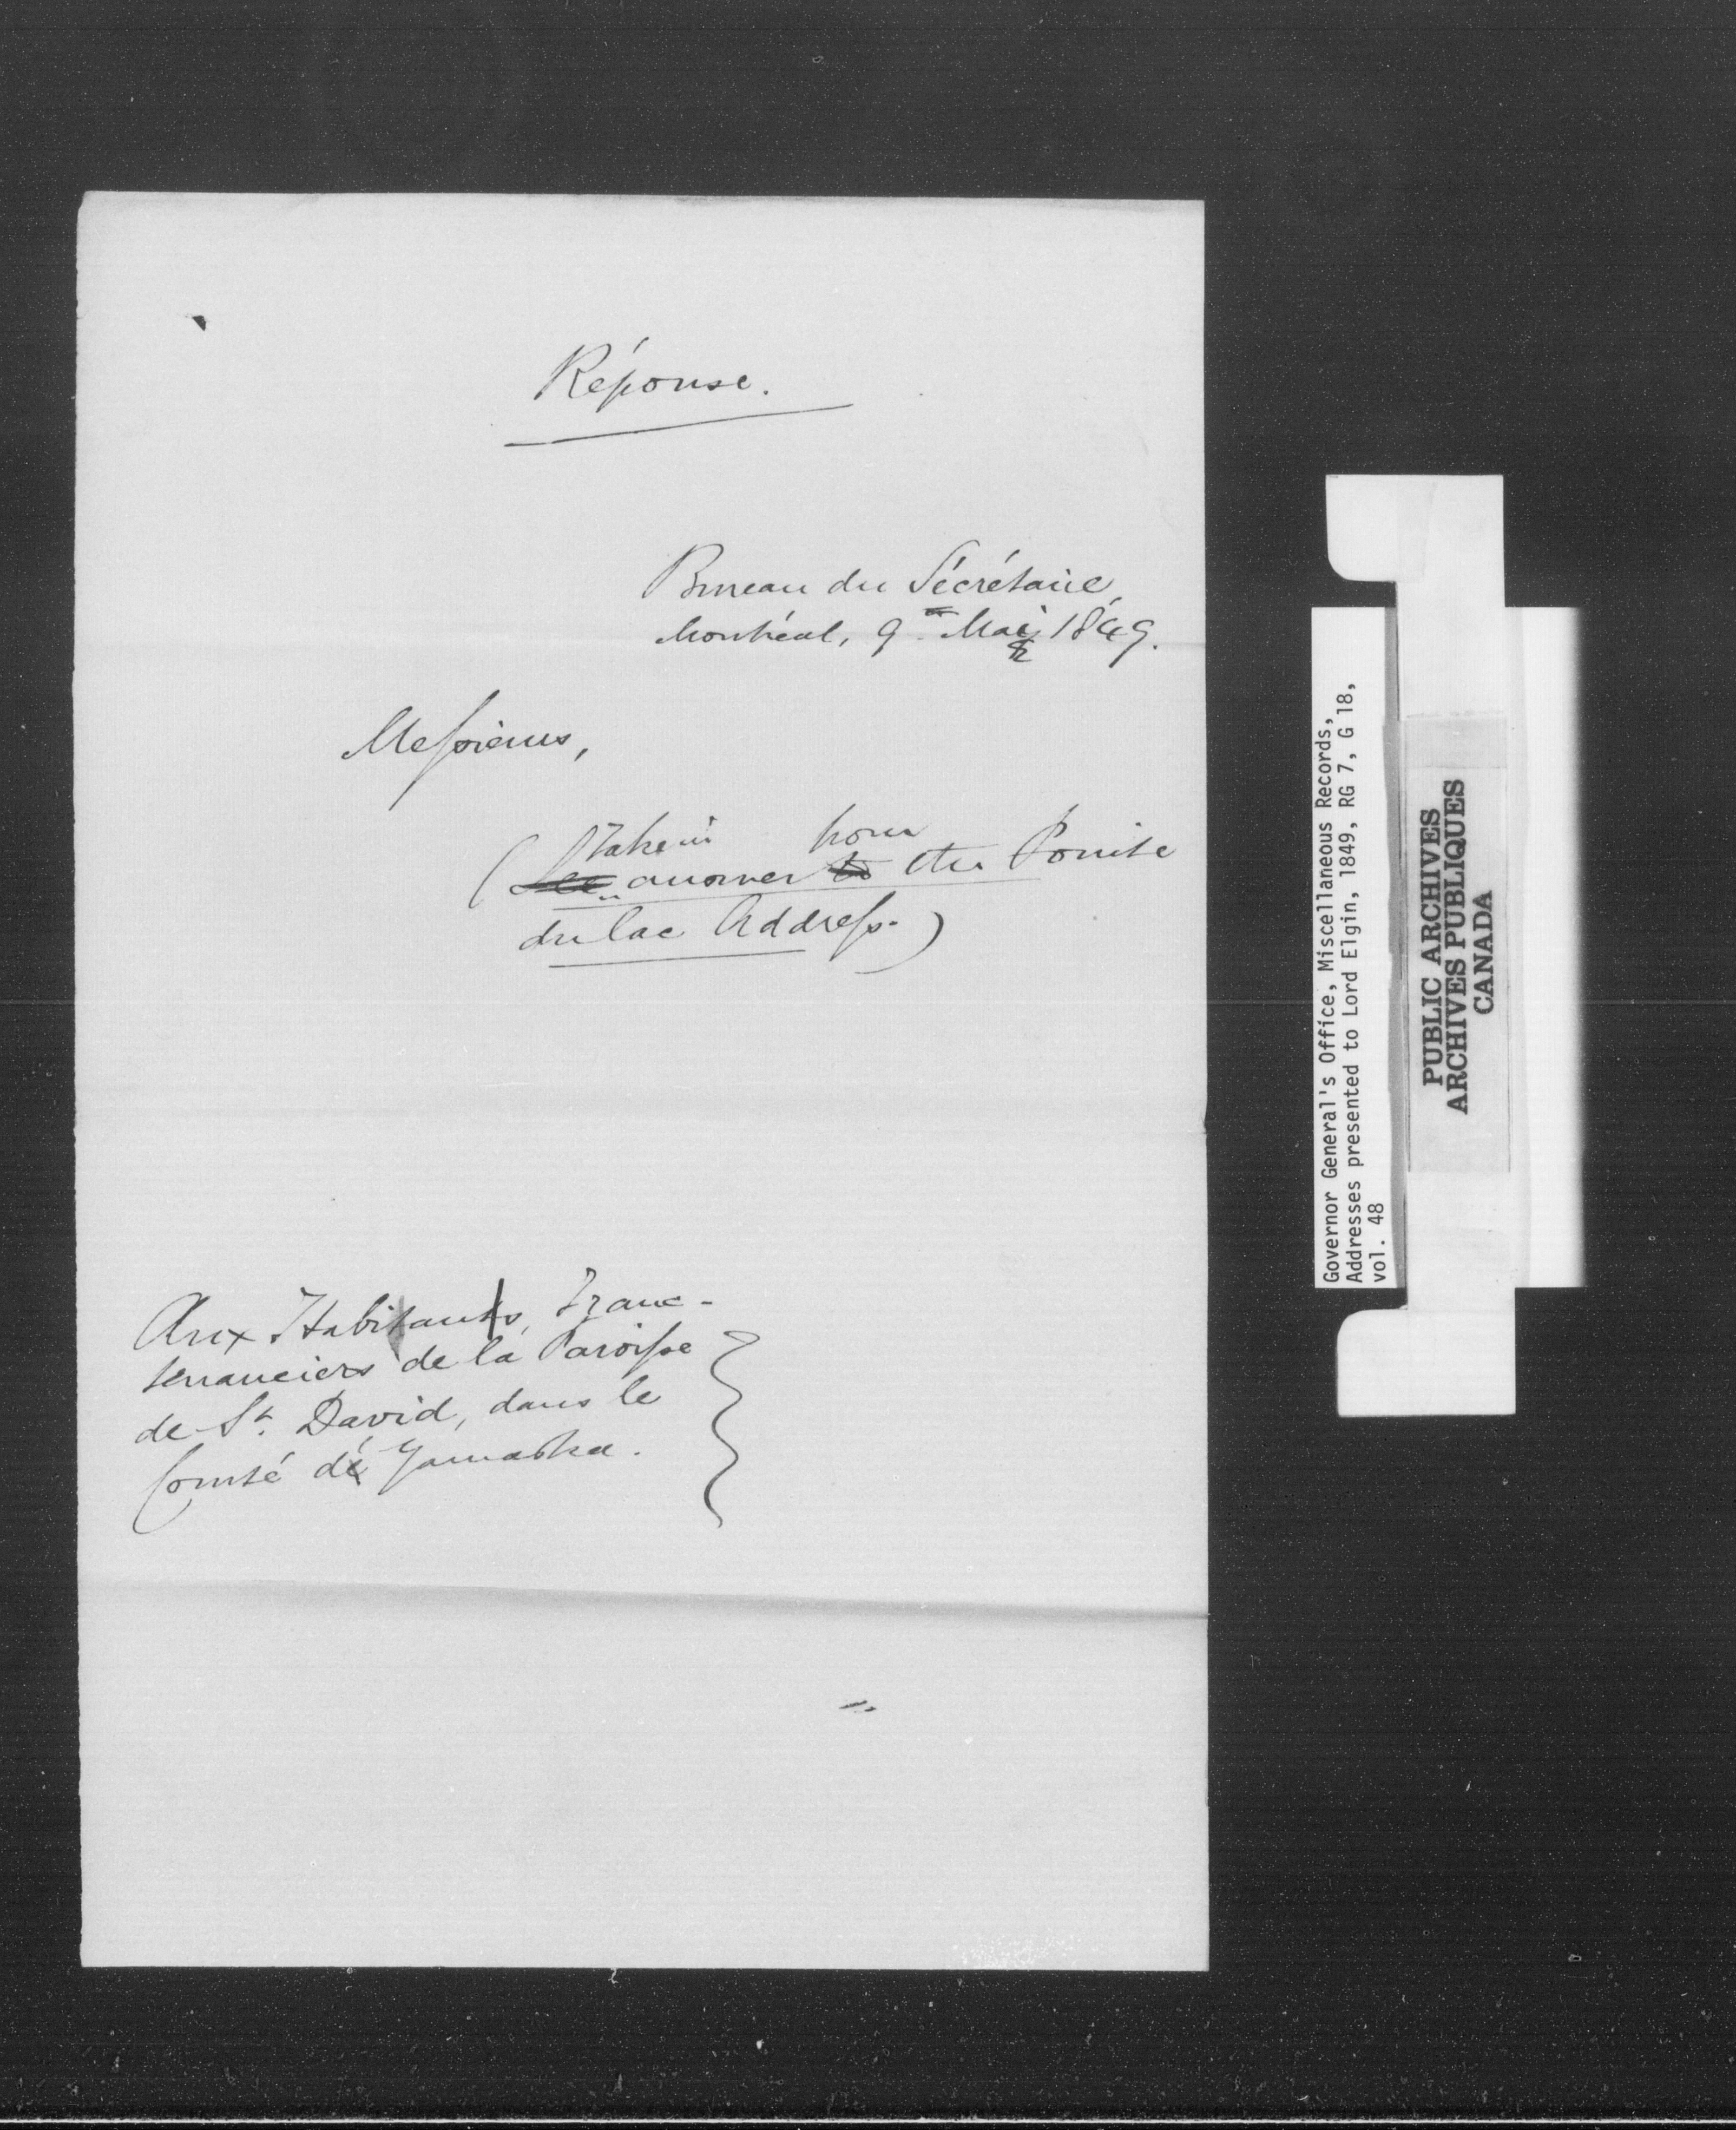 Réponse.
Bureau du Sécrétaire,
Montréal, 9 Mai 1849.
Messieurs,
taken from
(See answer to the Pointe
du lac Address.)
Aux Habitants, Franc-
tenanciers de la Paroisse
de St. David, dans le
Comté de Yamaska.
Governor General's Office, Miscellaneous Records,
Addresses presented to Lord Elgin, 1849, RG 7, G 18,
vol. 48
PUBLIC ARCHIVES
ARCHIVES PUBLIQUES
CANADA